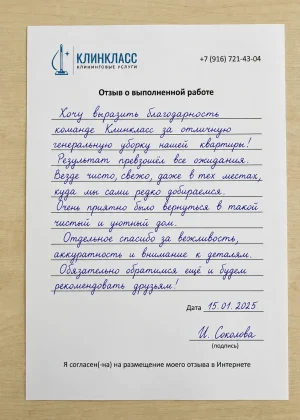 КЛИНКЛАСС
КЛИНИНГОВЫЕ УСЛУГИ
+7 (916) 721-43-04
Отзыв о выполненной работе
Хочу выразить благодарность
команде Клинкласс за отличную
генеральную уборку нашей квартиры!
Результат превзошёл все ожидания.
Везде чисто, свежо, даже в тех местах,
куда мы сами редко добираемся.
Очень приятно было вернуться в такой
чистый и уютный дом.
Отдельное спасибо за вежливость,
аккуратность и внимание к деталям.
Обязательно обратимся ещё и будем
рекомендовать друзьям!
Дата 15.01.2025
И. Соколова
(подпись)
Я согласен(-на) на размещение моего отзыва в Интернете